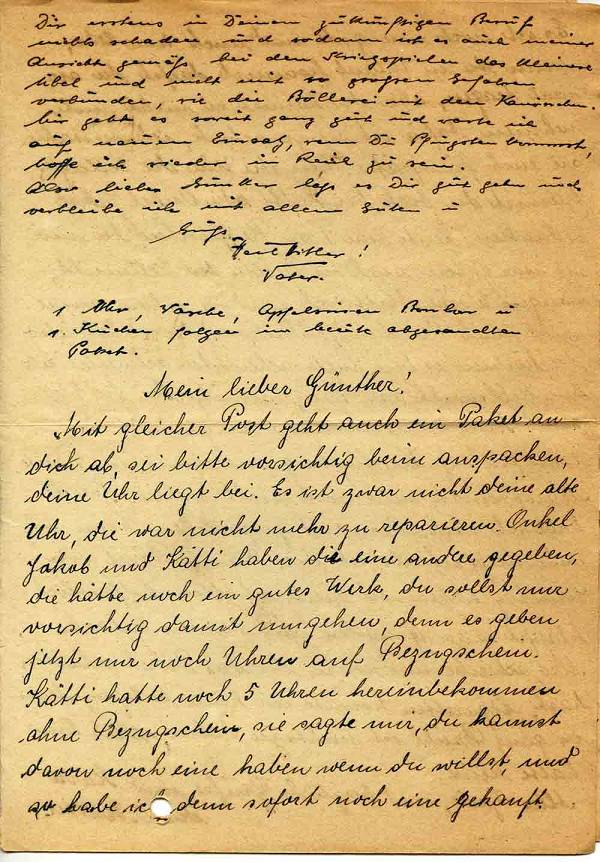 Dir erstens in Deinem zukünftigen Beruf
nichts schaden und sodann ist es auch meiner
Ansicht gemäß bei den Kriegsspielen das kleinere
Übel und nicht mit so großen Gefahren
verbunden, wie die Böllerei mit den
Mir geht es soweit ganz gut und warte ich
auf neuen Einsatz, wenn Du Pfingsten kommst,
hoffe ich wieder in Reil zu sein.
Also lieber Günther laß es Dir gut gehn und
verbleibe ich mit allem Guten u
Gruß
Heil Hitler!
Vater.
1 Uhr, Wäsche, Apfelsinen Bonbon u
1. Kuchen folgen im heute abgesandten
Paket.
Mein lieber Günther!
Mit gleicher Post geht auch ein Paket an
dich ab, sei bitte vorsichtig beim auspacken,
deine Uhr liegt bei. Es ist zwar nicht deine alte
Uhr, die war nicht mehr zu reparieren. Onkel
Jakob und Kätti haben die eine andre gegeben,
die hätte noch ein gutes Werk, du sollst nur
vorsichtig damit umgehen, denn es geben
jetzt nur noch Uhren auf Bezugschein.
Kätti hatte noch 5 Uhren hereinbekommen
ohne Bezugschein, sie sagte mir, du kannst
davon noch eine haben wenn du willst, und
so habe ich denn sofort noch eine gekauft.